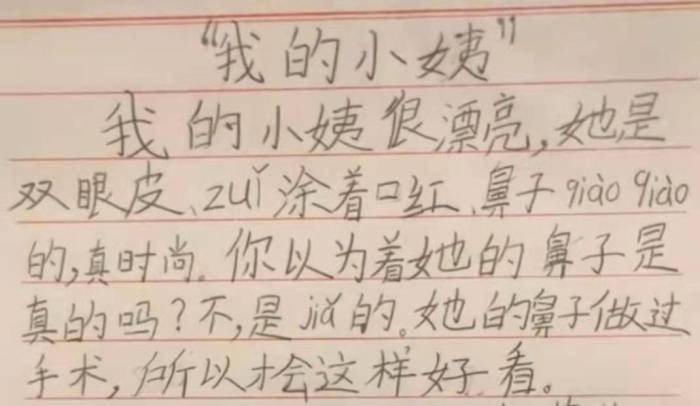 “我的小姨”
我的小姨很漂亮,她是
双眼皮、zuǐ涂着口红、鼻子qiào qiào
的,真时尚。你以为着她的鼻子是
真的吗?不,是jiǎ的。她的鼻子做过
手术,所以才会这样好看。